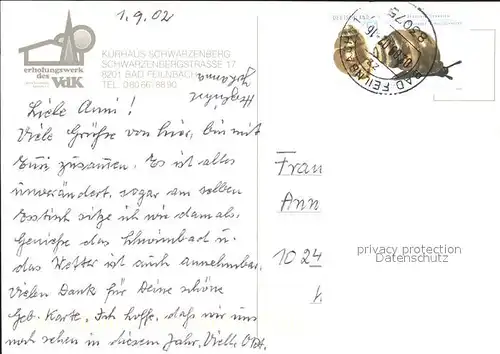 1.9.02
KURHAUS SCHWARZENBERG
SCHWARZENBERGSTRASSE 17
8201 BAD FEILNBACH
TEL. 080 66/88 90
erholungswerk
des VdK
83075
BAD FEILNBACH
Herzlichst
Johanna
Liebe Anni!
Viele Grüße von hier, bin mit
zusammen. Es ist alles
unverändert, sogar am selben
Esstisch sitze ich wie damals,
Genieße das Schwimmbad u.
das Wetter ist auch annehmbar.
Vielen Dank für Deine schöne
Geb. Karte. Ich hoffe, daß wir uns
noch sehen in diesem Jahr. Viell. Okt.
Frau
Ann
10 24
privacy protection
Datenschutz